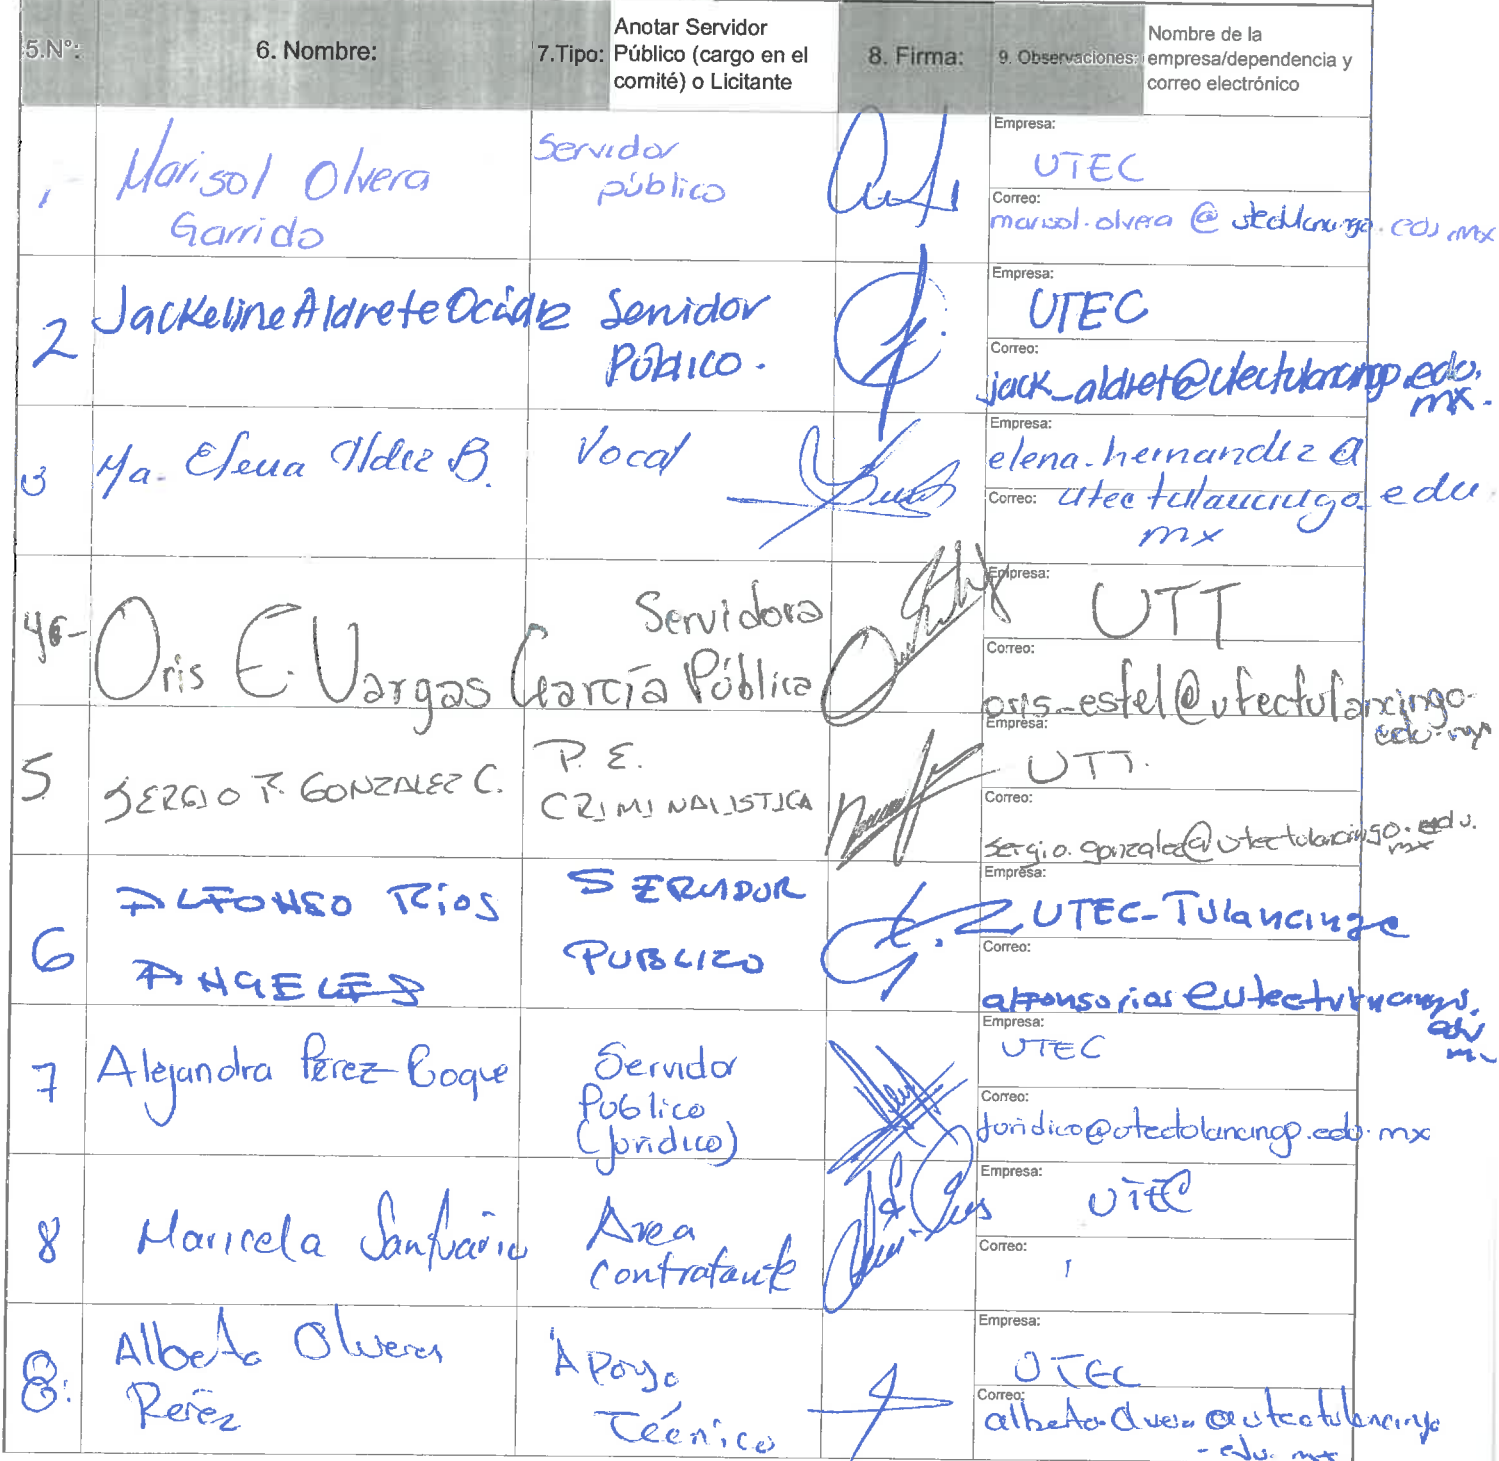 5.N°:
6. Nombre:
7.Tipo:
Anotar Servidor
Público (cargo en el
comité) o Licitante
8. Firma:
9. Observaciones:
Nombre de la
empresa/dependencia y
correo electrónico
1-
Marisol Olvera
Garrido
Servidor
público
Empresa:
UTEC
Correo:
marisol.olvera @ utectulancingo.edu.mx
2
Jackeline Aldrete Ocádiz
Servidor
Público.
Empresa:
UTEC
Correo:
jack_aldrete@utectulancingo.edu.
mx.
3
Ma. Elena Hdez B.
Vocal
Empresa:
elena.hernandez @
Correo: utectulancingo.edu.
mx
4.-
Oris E. Vargas García
Servidora
Pública
Empresa:
UTT
Correo:
oris_estel@utectulancingo.
edu.mx
Empresa:
5
SERGIO F. GONZALEZ C.
P. E.
CRIMINALISTICA
UTT.
Correo:
sergio.gonzalez@utectulancingo.edu.
mx
6
ALFONSO Ríos
ANGELES
SERVIDOR
PUBLICO
Empresa:
UTEC-Tulancingo
Correo:
alfonso.rios@utectulancingo.
edu
mx
7
Alejandra Pérez Roque
Servidor
Público
(Jurídico)
Empresa:
UTEC
Correo:
juridico@utectulancingo.edu.mx
8
Maricela Santuario
Area
contratante
Empresa:
UTEC
Correo:
8.
Alberto Olvera
Peréz
Apoyo
Técnico
Empresa:
UTEC
Correo:
alberto.olvera@utectulancingo
.edu.mx